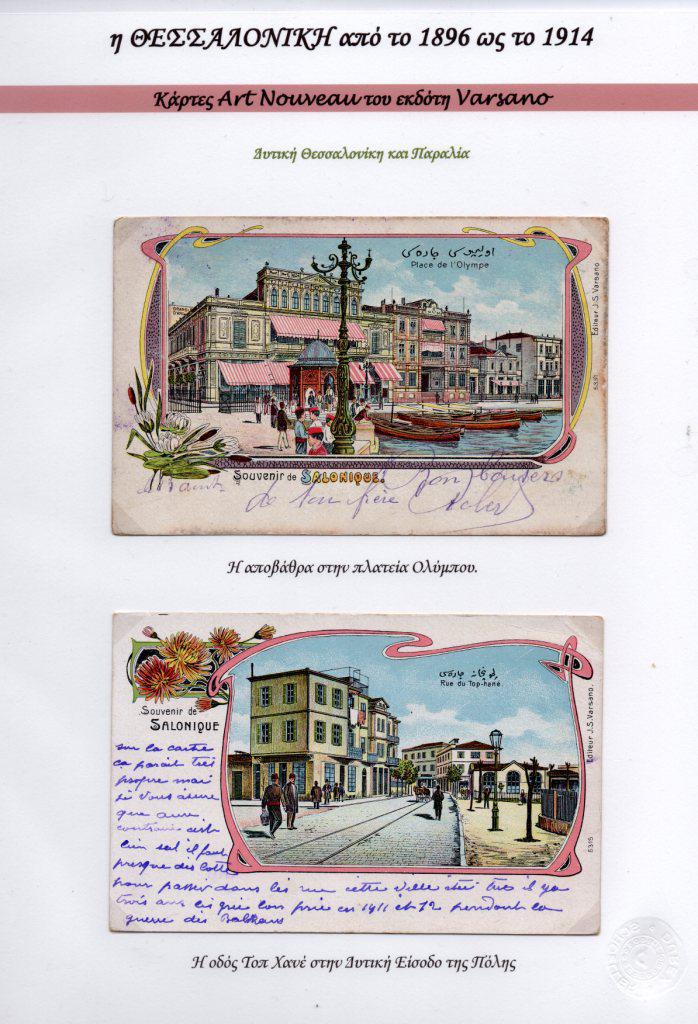 η ΘΕΣΣΑΛΟΝΙΚΗ από το 1896 ως το 1914
Κάρτες Art Nouveau του εκδότη Varsano
Δυτική Θεσσαλονίκη και Παραλία
Place de l'Olympe
Editeur J.S. Varsano
Souvenir de SALONIQUE.
Bon
de ton frère
Η αποβάθρα στην πλατεία Ολύμπου.
Rue du Top-hané.
Souvenir de
SALONIQUE
Editeur J.S. Varsano.
5315
sur la carte
ça parait très
propre mai
je vous assure
que au
contraire c'est
bien sal il faut
presque des botte
pour passer dans les rue cette ville était il ya
trois ans les grec lon prie en 1911 et 12 pendant la
guerre des Balkans
Η οδός Τοπ Χανέ στην Δυτική Είσοδο της Πόλης